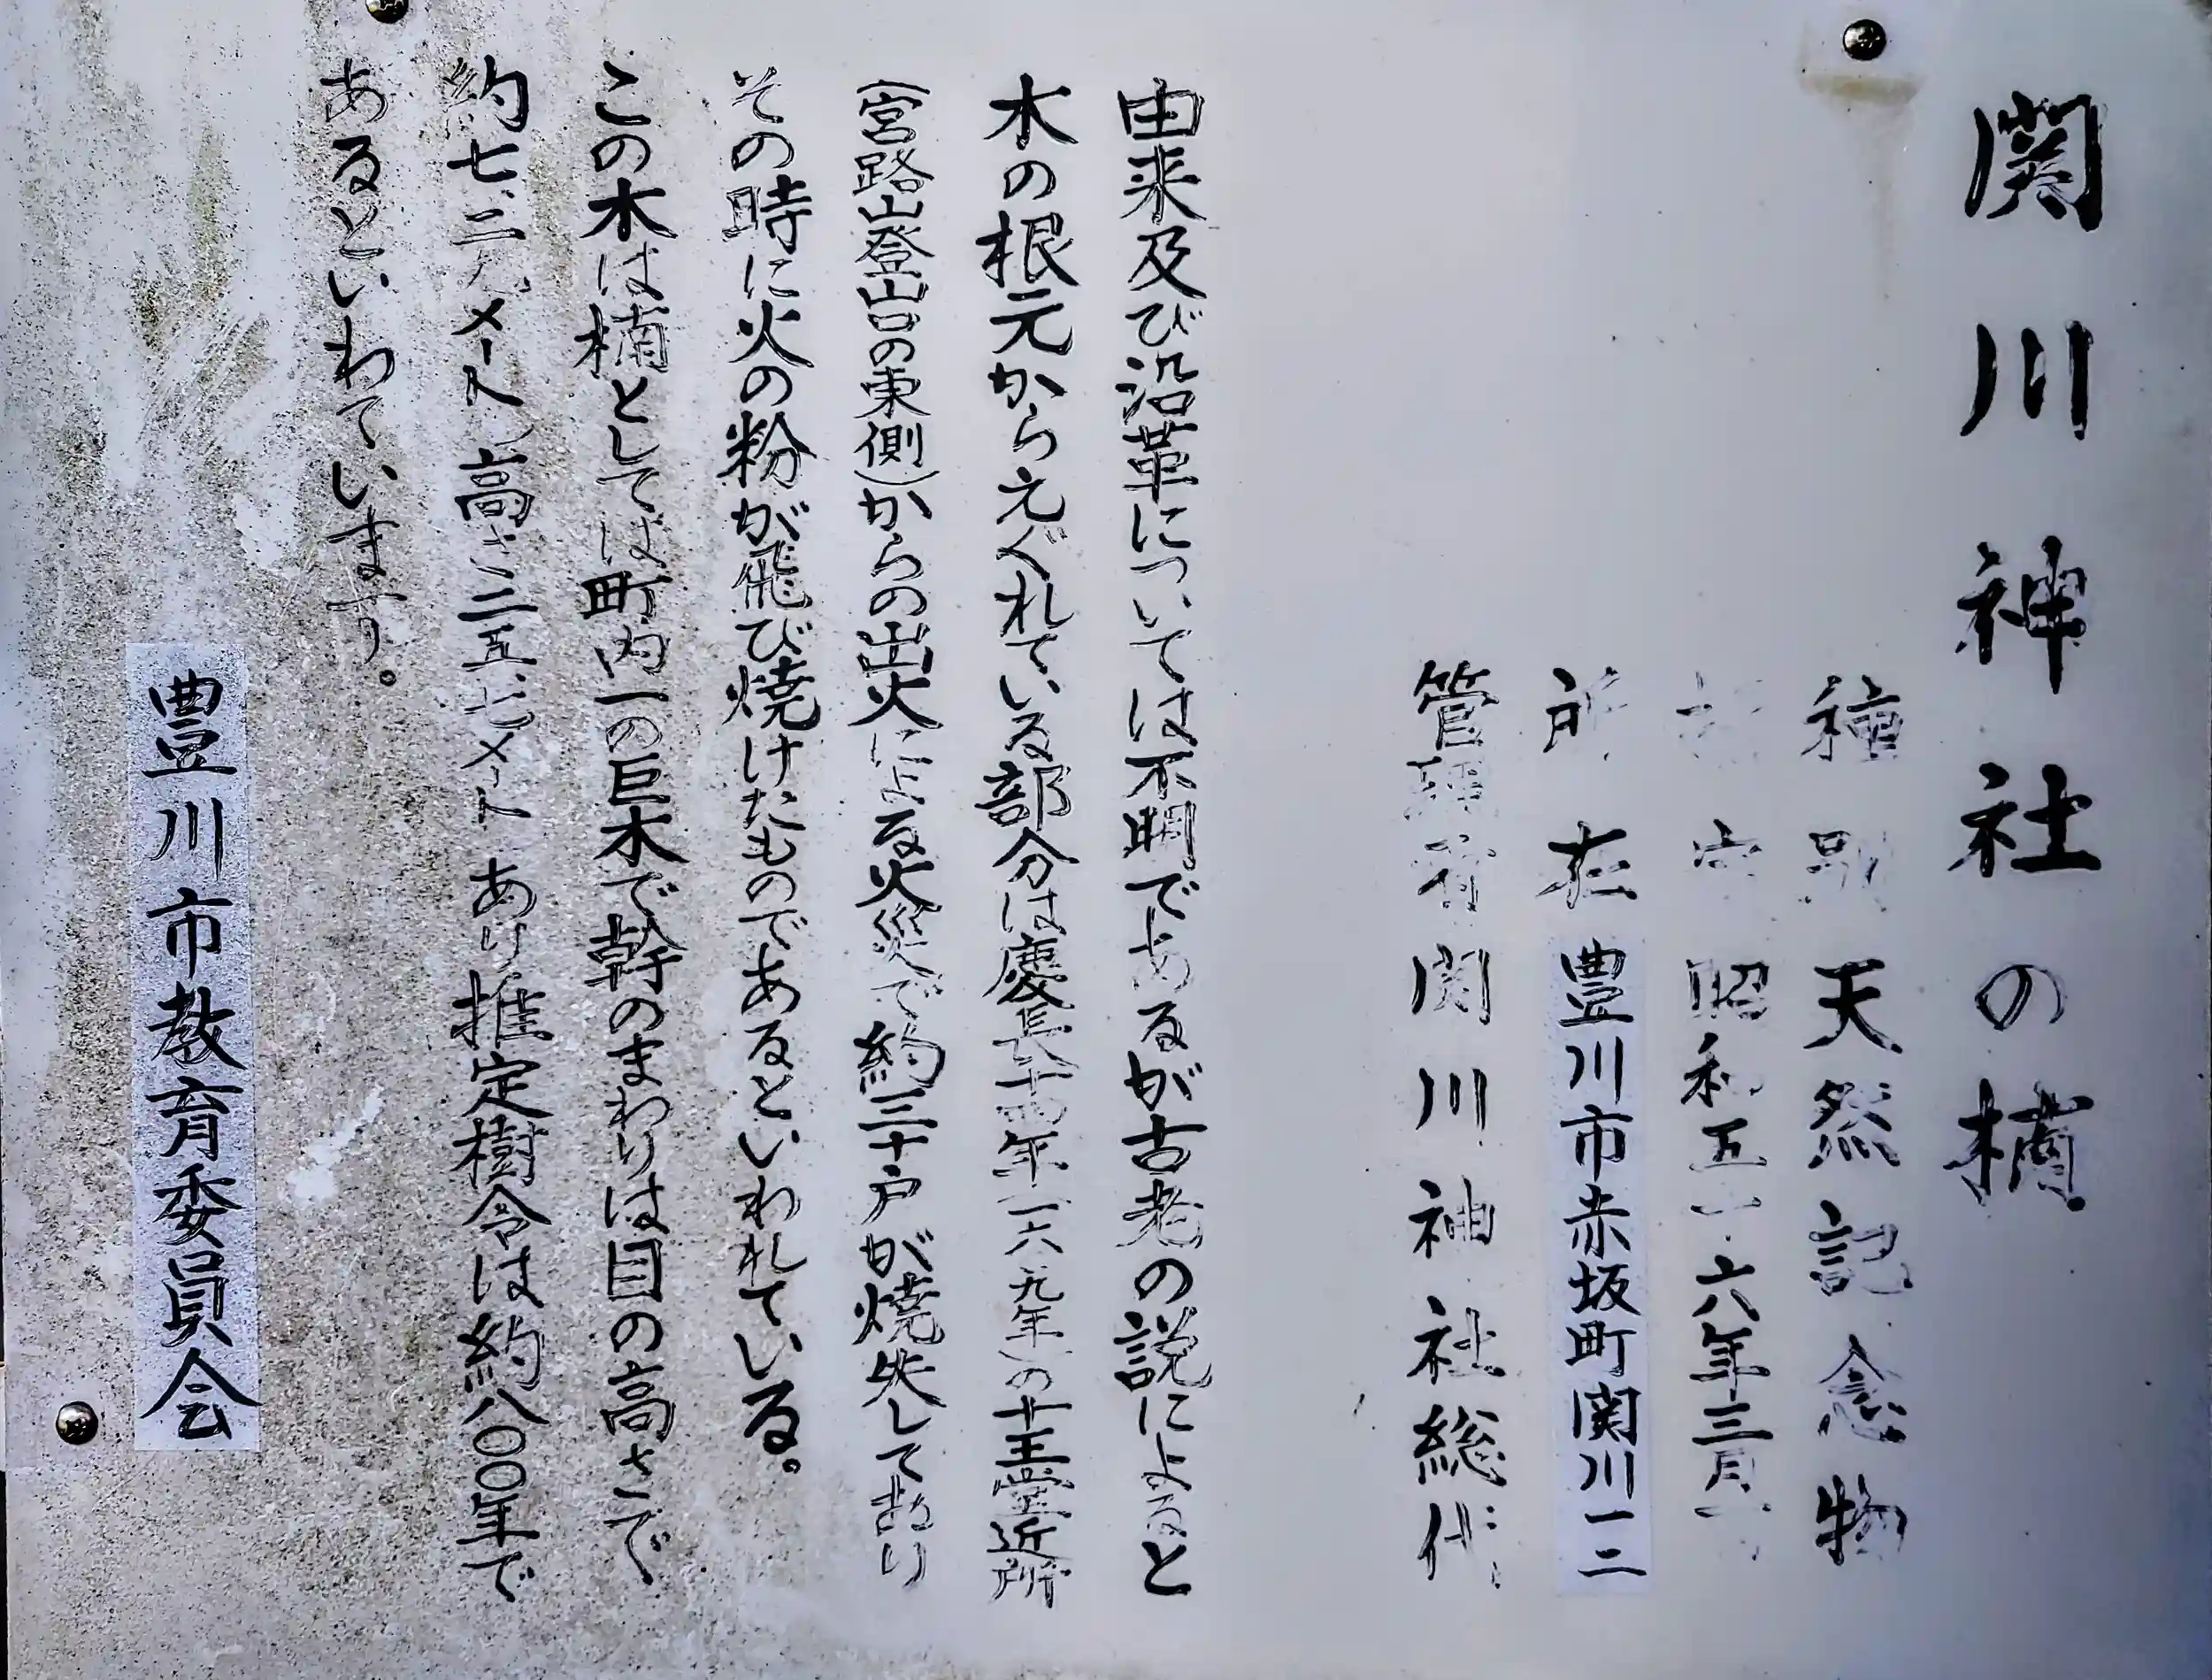 関川神社の楠
種別 天然記念物
昭和五十六年三月
所在 豊川市赤坂町関川一二
管理者 関川神社総代
由来及び沿革については不明であるが古老の説によると
木の根元からえぐれている部分は慶長十四年(一六〇九年)の十王堂近所
(宮路山登山口の東側)からの出火による火災で約三十戸が焼失しており
その時に火の粉が飛び焼けたものであるといわれている。
この木は楠としては町内一の巨木で幹のまわりは目の高さで
約七、二 メート 高さ二五、七メート あり推定樹令は約八〇〇年で
あるといわています。
豊川市教育委員会